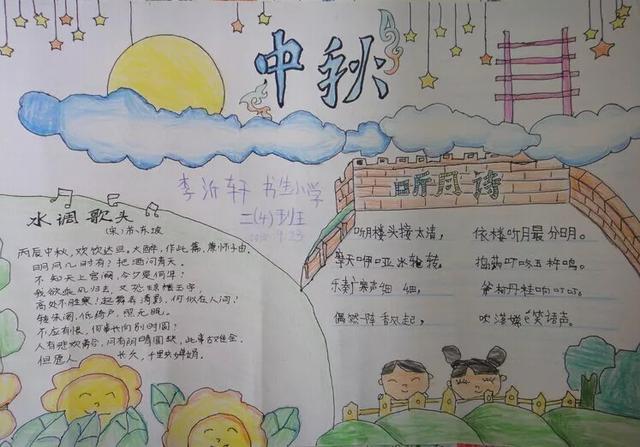 中秋
李沂轩 书生小学
二(4)班
2015.9.23
水调歌头
(宋)苏东坡
丙辰中秋，欢饮达旦，大醉，作此篇，兼怀子由。
明月几时有？把酒问青天。
不知天上宫阙，今夕是何年？
我欲乘风归去，又恐琼楼玉宇，
高处不胜寒！起舞弄清影，何似在人间？
转朱阁，低绮户，照无眠。
不应有恨，何事长向别时圆？
人有悲欢离合，月有阴晴圆缺，此事古难全。
但愿人长久，千里共婵娟。
听月诗
听月楼头接太清，依楼听月最分明。
摩天咿哑冰轮转，捣药叮咚玉杵鸣。
乐奏广寒声细细，斧柯丹桂响叮叮。
偶然一阵香风起，吹落嫦娥笑语声。